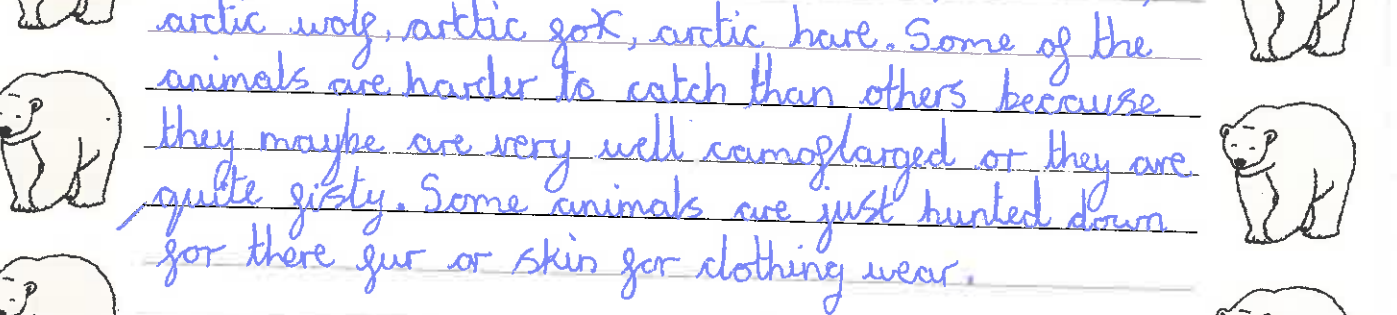 arctic wolf, arctic fox, arctic hare. Some of the
animals are harder to catch than others because
they maybe are very well camoflarged or they are
quite fisty. Some animals are just hunted down
for there fur or skin for clothing wear.